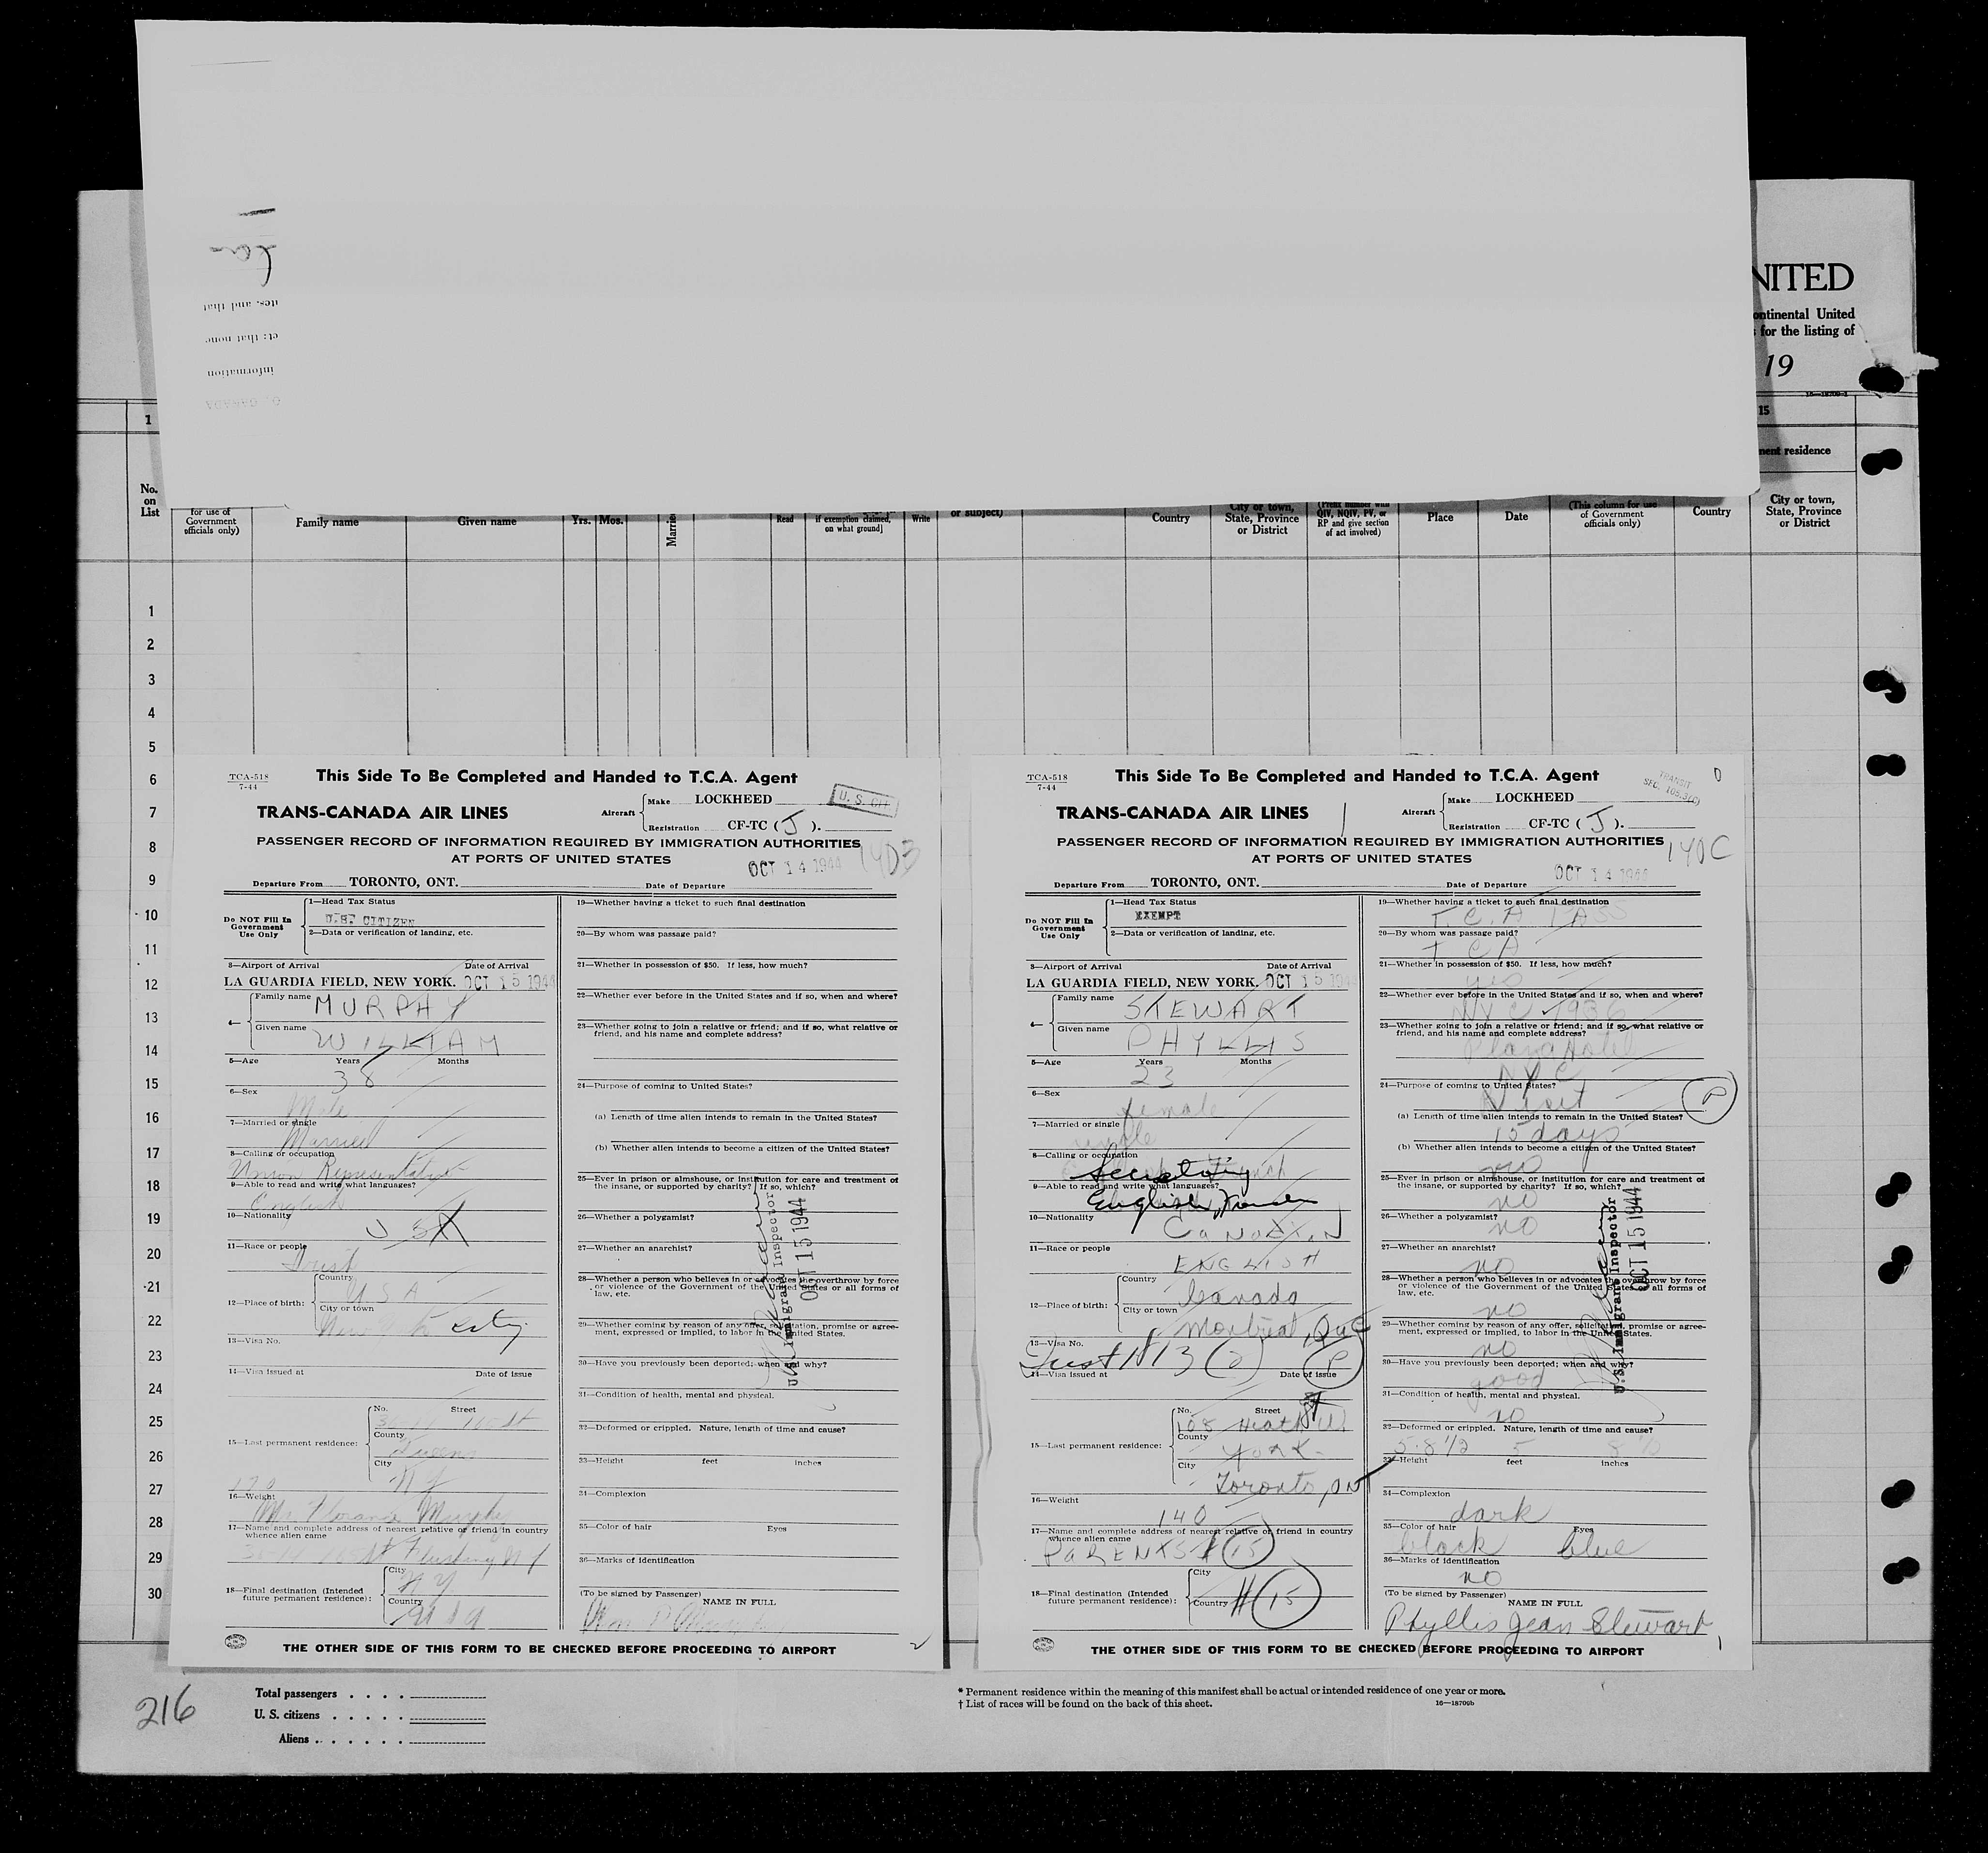 NITED
ontinental United
for the listing of
19
16—18709-1
1
15
nent residence
No.
on
List
for use of
Government
officials only)
Family name
Given name
Yrs.
Mos.
Married
Read
if exemption claimed,
on what ground]
Write
or subject)
Country
City or town,
State, Province
or District
(Prefix number with
QIV, NQIV, PV, or
RP and give section
of act involved)
Place
Date
(This column for use
of Government
officials only)
Country
City or town,
State, Province
or District
1
2
3
4
5
6
7
8
9
10
11
12
13
14
15
16
17
18
19
20
21
22
23
24
25
26
27
28
29
30
TCA-518
7-44
This Side To Be Completed and Handed to T.C.A. Agent
TRANS-CANADA AIR LINES
Aircraft
Make LOCKHEED
Registration CF-TC ( J ).
U. S. CIT
PASSENGER RECORD OF INFORMATION REQUIRED BY IMMIGRATION AUTHORITIES
AT PORTS OF UNITED STATES
OCT 14 1944
14D3
Departure From TORONTO, ONT.
Date of Departure
Do NOT Fill In
Government
Use Only
1—Head Tax Status
U.S. CITIZEN
2—Data or verification of landing, etc.
3—Airport of Arrival
Date of Arrival
LA GUARDIA FIELD, NEW YORK. OCT 15 1944
4—
Family name MURPHY
Given name WILLIAM
5—Age Years Months
38
6—Sex
Male
7—Married or single
Married
8—Calling or occupation
Union Representative
9—Able to read and write what languages?
English
10—Nationality
USA
11—Race or people
Irish
12—Place of birth:
Country
U.S.A
City or town
City
13—Visa No.
14—Visa issued at
Date of issue
15—Last permanent residence:
No. Street
165 St
County
Queens
City
N Y
16—Weight
Florance Murphy
17—Name and complete address of nearest relative or friend in country
whence alien came
165 St Flushing N Y
18—Final destination (Intended
future permanent residence):
City
N.Y.
Country
19—Whether having a ticket to such final destination
20—By whom was passage paid?
21—Whether in possession of $50. If less, how much?
22—Whether ever before in the United States and if so, when and where?
23—Whether going to join a relative or friend; and if so, what relative or
friend, and his name and complete address?
24—Purpose of coming to United States?
(a) Length of time alien intends to remain in the United States?
(b) Whether alien intends to become a citizen of the United States?
25—Ever in prison or almshouse, or institution for care and treatment of
the insane, or supported by charity? If so, which?
26—Whether a polygamist?
27—Whether an anarchist?
28—Whether a person who believes in or advocates the overthrow by force
or violence of the Government of the United States or all forms of
law, etc.
29—Whether coming by reason of any offer, solicitation, promise or agree-
ment, expressed or implied, to labor in the United States.
30—Have you previously been deported; when and why?
31—Condition of health, mental and physical.
32—Deformed or crippled. Nature, length of time and cause?
33—Height feet inches
34—Complexion
35—Color of hair Eyes
36—Marks of identification
(To be signed by Passenger)
NAME IN FULL
U.S. Immigrant Inspector
OCT 15 1944
THE OTHER SIDE OF THIS FORM TO BE CHECKED BEFORE PROCEEDING TO AIRPORT
TCA-518
7-44
This Side To Be Completed and Handed to T.C.A. Agent
TRANS-CANADA AIR LINES
Aircraft
Make LOCKHEED
Registration CF-TC ( J ).
TRANSIT
SEC. 103.3(c)
PASSENGER RECORD OF INFORMATION REQUIRED BY IMMIGRATION AUTHORITIES
AT PORTS OF UNITED STATES
140C
OCT 14 1944
Departure From TORONTO, ONT.
Date of Departure
Do NOT Fill In
Government
Use Only
1—Head Tax Status
EXEMPT
2—Data or verification of landing, etc.
3—Airport of Arrival
Date of Arrival
LA GUARDIA FIELD, NEW YORK. OCT 15 194
4—
Family name STEWART
Given name PHYLLIS
5—Age Years Months
23
6—Sex
female
7—Married or single
single
8—Calling or occupation
Secretary
9—Able to read and write what languages?
English, French
10—Nationality
CANADIAN
11—Race or people
ENGLISH
12—Place of birth:
Country
Canada
City or town
Montreal, Que
13—Visa No.
P
14—Visa issued at
Date of issue
15—Last permanent residence:
No. Street
108 Heath St W
County
YORK
City
Toronto, ONT
16—Weight
140
17—Name and complete address of nearest relative or friend in country
whence alien came
PARENTS # 15
18—Final destination (Intended
future permanent residence):
City
Country
# 15
19—Whether having a ticket to such final destination
T.C.A PASS
20—By whom was passage paid?
T C A
21—Whether in possession of $50. If less, how much?
yes
22—Whether ever before in the United States and if so, when and where?
NYC 1936
23—Whether going to join a relative or friend; and if so, what relative or
friend, and his name and complete address?
Plaza Hotel
NYC
24—Purpose of coming to United States?
Visit
P
(a) Length of time alien intends to remain in the United States?
15 days
(b) Whether alien intends to become a citizen of the United States?
no
25—Ever in prison or almshouse, or institution for care and treatment of
the insane, or supported by charity? If so, which?
no
26—Whether a polygamist?
no
27—Whether an anarchist?
no
28—Whether a person who believes in or advocates the overthrow by force
or violence of the Government of the United States or all forms of
law, etc.
no
29—Whether coming by reason of any offer, solicitation, promise or agree-
ment, expressed or implied, to labor in the United States.
no
30—Have you previously been deported; when and why?
good
31—Condition of health, mental and physical.
no
32—Deformed or crippled. Nature, length of time and cause?
5-8 1/2 5 8 1/2
33—Height feet inches
34—Complexion
dark
35—Color of hair Eyes
black blue
36—Marks of identification
no
(To be signed by Passenger)
NAME IN FULL
Phyllis Jean Stewart
U.S. Immigrant Inspector
OCT 15 1944
THE OTHER SIDE OF THIS FORM TO BE CHECKED BEFORE PROCEEDING TO AIRPORT
216
Total passengers . . . .
U. S. citizens . . . . .
Aliens . . . . . .
* Permanent residence within the meaning of this manifest shall be actual or intended residence of one year or more.
† List of races will be found on the back of this sheet.
16—18709b